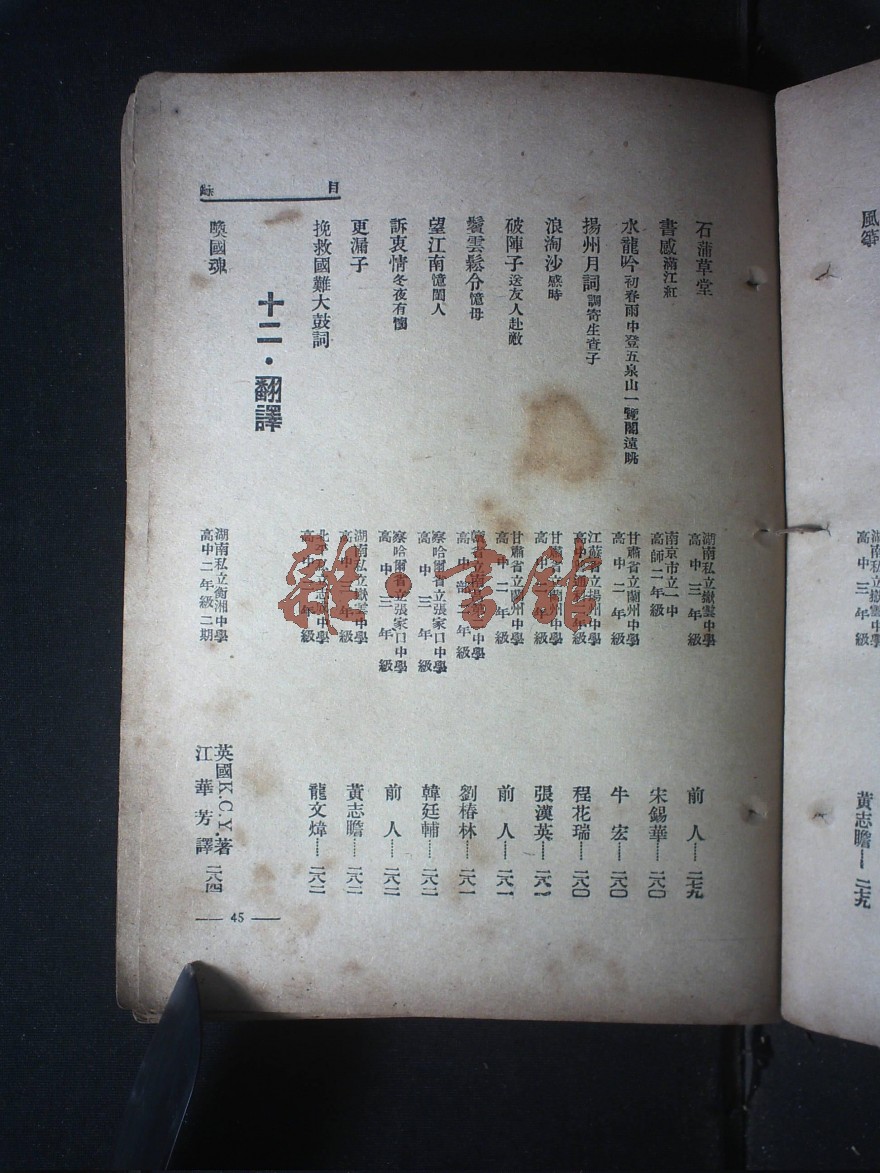 風箏
湖南私立嶽雲中學
高中三年級
黃志瞻 二七九
目錄
石蒲草堂
湖南私立嶽雲中學
高中三年級
前人 二七九
書感滿江紅
南京市立一中
高師二年級
宋錫華 二八〇
水龍吟初春雨中登五泉山一覽閣遠眺
甘肅省立蘭州中學
高中二年級
牛宏 二八〇
揚州月詞調寄生查子
江蘇省立揚州中學
程花瑞 二八〇
浪淘沙感時
甘肅省立蘭州中學
張漢英 二八一
破陣子送友人赴敵
甘肅省立蘭州中學
前人 二八一
鬢雲鬆分憶母
劉椿林 二八一
望江南憶閨人
察哈爾省立張家口中學
高中三年級
韓廷輔 二八二
訴衷情冬夜有懷
察哈爾省立張家口中學
高中三年級
前人 二八二
更漏子
湖南私立嶽雲中學
高中三年級
黃志瞻 二八二
挽救國難大鼓詞
龍文煒 二八二
十二・翻譯
喚國魂
湖南私立衡湘中學
高中二年級二期
英國K.C.Y.著
江華芳譯 二八四
— 45 —
雜·書館